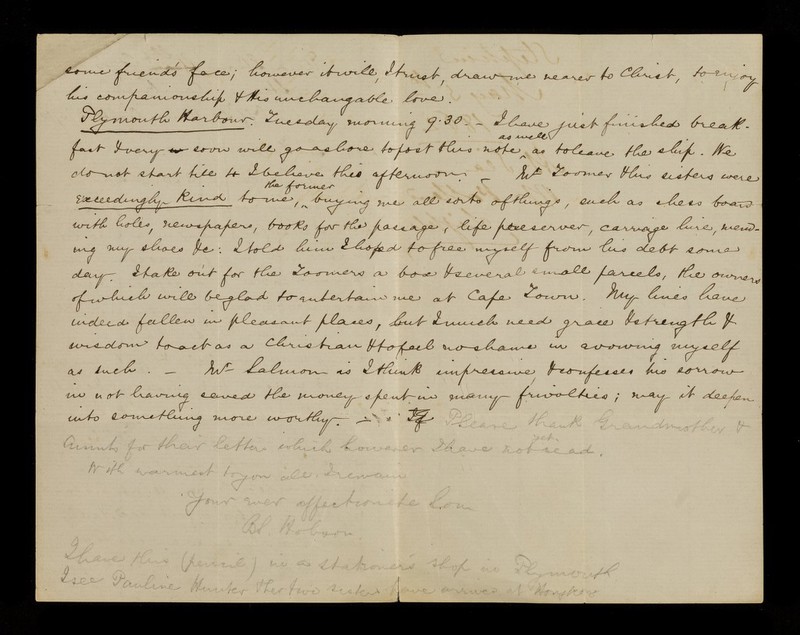 some friend's face; however it will, I trust, draw me nearer to Christ, to enjoy
his companionship & His unchangable love.
Plymouth Harbour. Tuesday morning 9.30. - I have just finished break-
fast & very soon will go ashore to post this note as well as to leave the ship. We
do not start till 4 I believe this afternoon. - Mr Toomer & his sisters were
exceedingly kind to me, the former buying me all sorts of things, such as chess board
with holes, newspapers, books for the passage, life preserver, carriage hire, mend-
ing my shoes &c: I told him I hoped to free myself from his debt some
day. I take out for the Toomers a box & several small parcels, the owners
of which will be glad to entertain me at Cape Town. My lines have
indeed fallen in pleasant places, but I much need grace & strength &
wisdom to act as a Christian & to feel no shame in avowing myself
as such. - Mr Salmon is I think impressive, & confesses his sorrow
in not having saved the money spent in many frivolties; may it deepen
into something more worthy. - Please thank Grandmother &
Aunts for their letter which however I have not yet read.
With warmest to you all I remain
Your ever affectionate Son
B. Hobson
I have this (pencil) in a stationer's shop in Plymouth
I see Pauline Hunter & her two sisters have arrived at